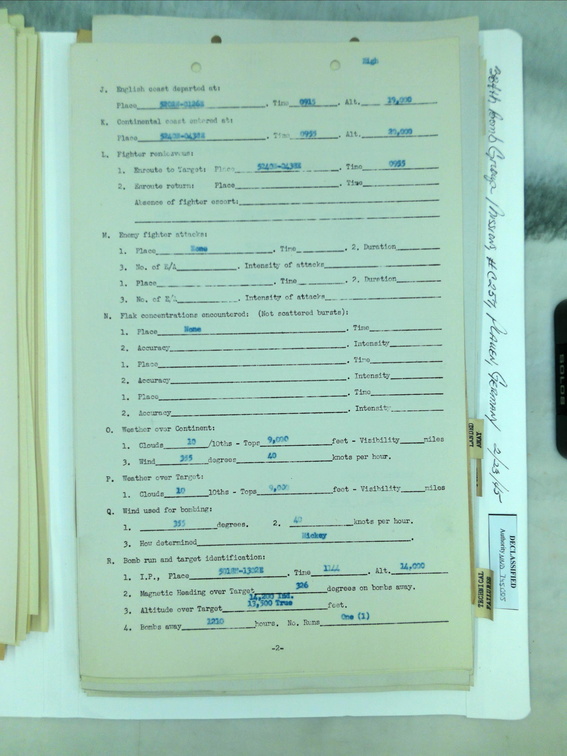 High
J. English coast departed at:
Place 5212N-0126E . Time 0915 . Alt. 19,000
K. Continental coast entered at:
Place 5240N-0438E . Time 0935 . Alt. 23,000
L. Fighter rendezvous:
1. Enroute to Target: Place 5240N-0438E . Time 0935
2. Enroute return: Place . Time
Absence of fighter escort:
M. Enemy fighter attacks:
1. Place None . Time . 2. Duration
3. No. of E/A . Intensity of attacks
1. Place . Time . 2. Duration
3. No. of E/A . Intensity of attacks
N. Flak concentrations encountered: (Not scattered bursts):
1. Place None . Time
2. Accuracy . Intensity
1. Place . Time
2. Accuracy . Intensity
1. Place . Time
2. Accuracy . Intensity
O. Weather over Continent:
1. Clouds 10 /10ths - Tops 9,000 feet - Visibility miles
3. Wind 355 degrees 40 knots per hour.
P. Weather over Target:
1. Clouds 10 10ths - Tops 9,000 feet - Visibility miles
Q. Wind used for bombing:
1. 355 degrees. 2. 40 knots per hour.
3. How determined Mickey .
R. Bomb run and target identification:
1. I.P., Place Time 1144 . Alt. 14,000
2. Magnetic Heading over Target 326 degrees on bombs away.
14,200 Ind.
3. Altitude over Target 13,500 True feet.
4. Bombs away 1210 hours. No. Runs One (1)
-2-
384th Bomb Group Mission #C257, Plauen, Germany 2/23/45
DECLASSIFIED
Authority NND 745005
ARMY
TECHNICAL